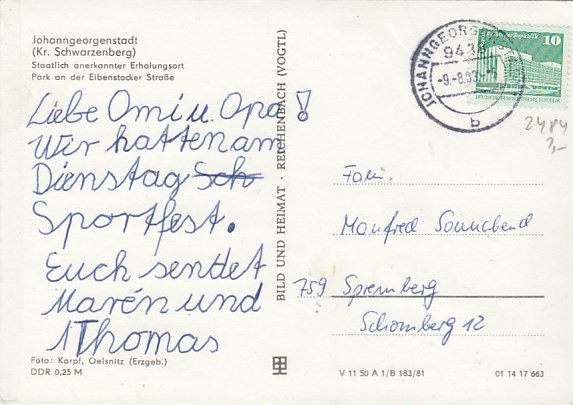 Johanngeorgenstadt
(Kr. Schwarzenberg)
Staatlich anerkannter Erholungsort
Park an der Eibenstocker Straße
Liebe Omi u. Opa!
Wir hatten am
Dienstag Sch
Sportfest.
Euch sendet
Marén und
Thomas
Foto: Karpf, Oelsnitz (Erzgeb.)
DDR 0,25 M
BILD UND HEIMAT · REICHENBACH (VOGTL)
JOHANNGEORGENSTADT
9438
-9.-8.83
b
10
2484
3,-
Fam.
Manfred Sonnabend
759 Spremberg
Schomberg 12
V 11 50 A 1/B 183/81
01 14 17 663